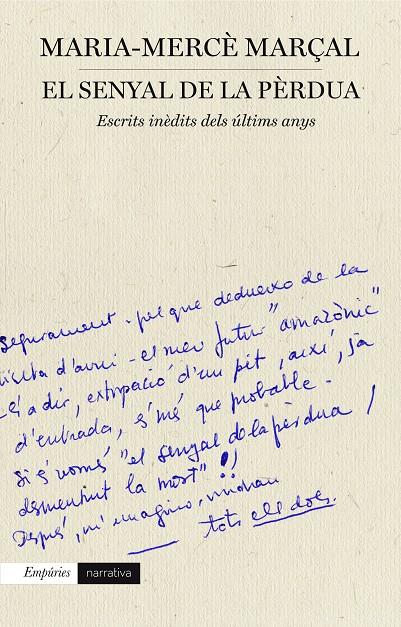 MARIA-MERCÈ MARÇAL
EL SENYAL DE LA PÈRDUA
Escrits inèdits dels últims anys
Segurament - pel que dedueixo de la
visita d'avui - el meu futur "amazònic"
- és a dir, extirpació d'un pit, així, ja
d'entrada, és més que probable -
Si és només "el senyal de la pèrdua /
desmentint la mort" !!
Després, m'imagino, vindran
tots ells dos.
Empúries narrativa